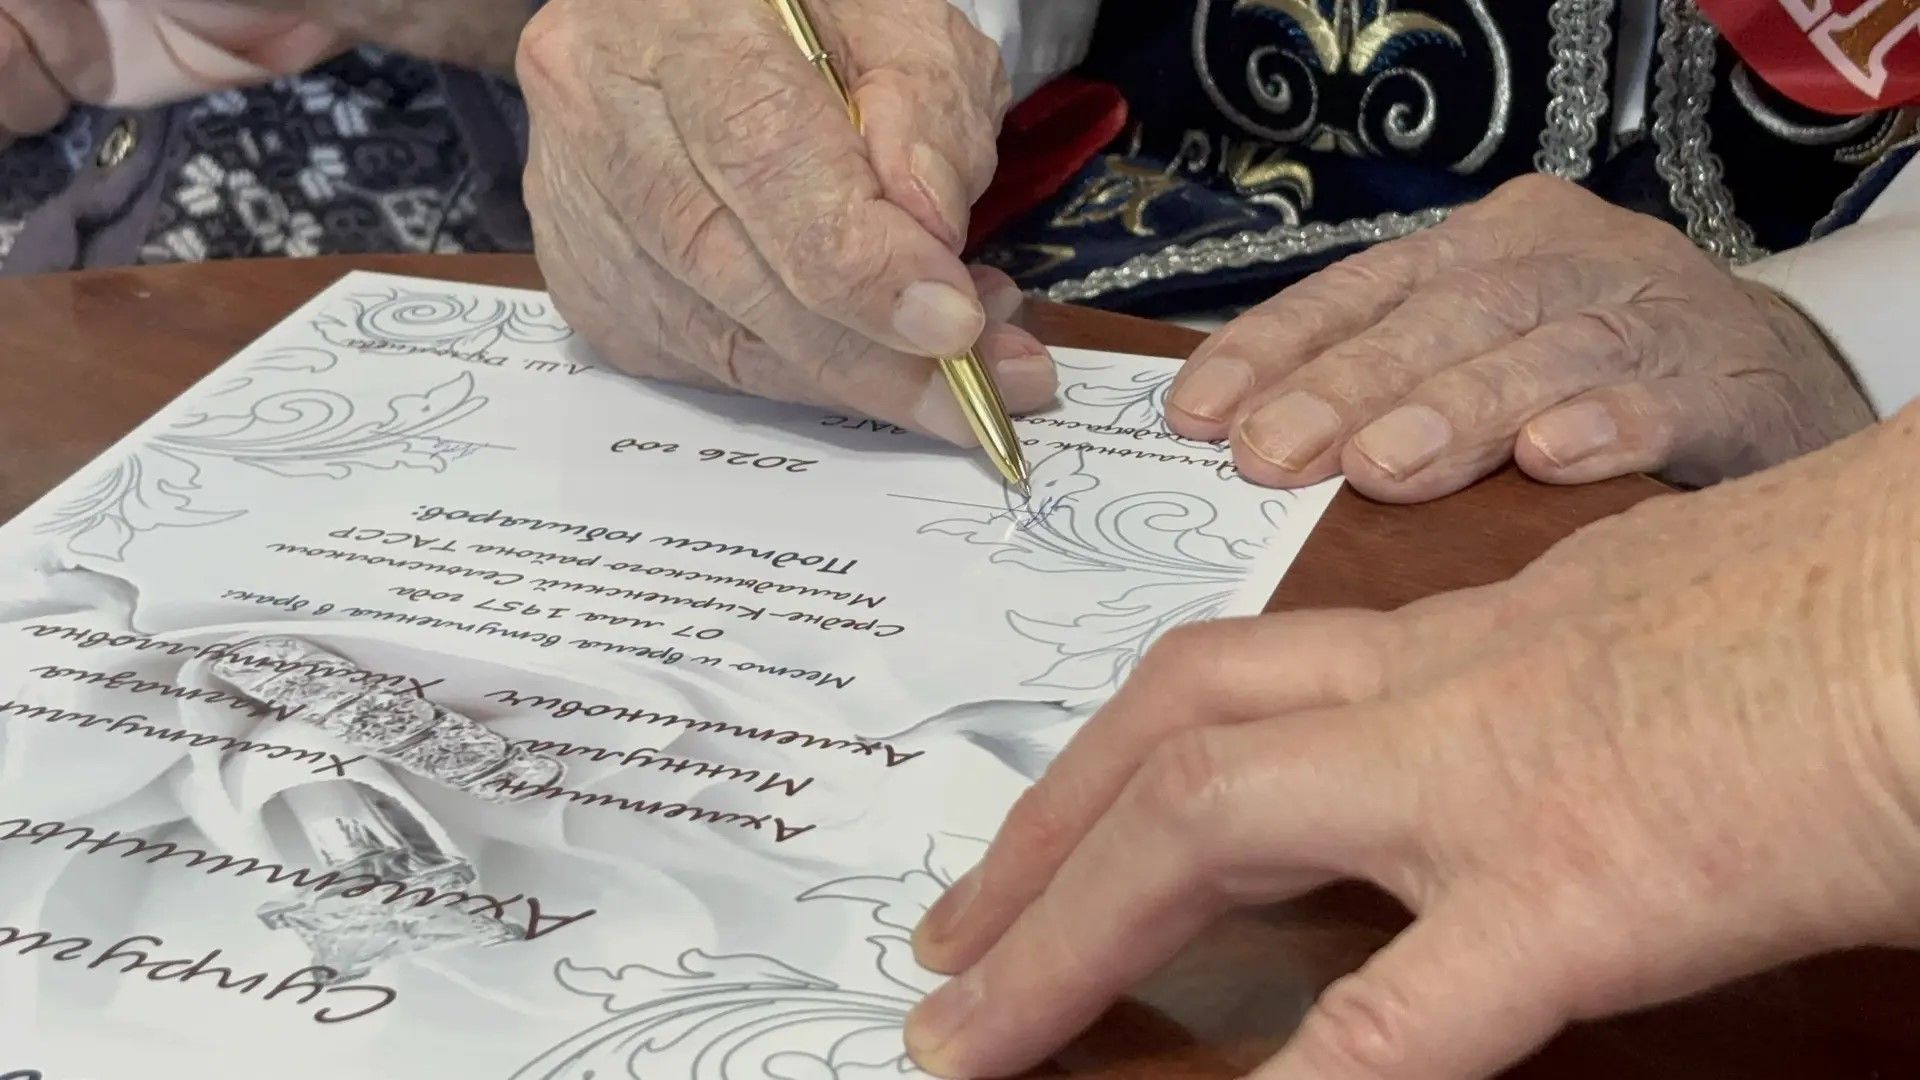 Супруги
Ахметшины
Ахметшин Хисматуллин
Миннулла Магмазия
Ахметшинович Хисматулловна
Место и время вступления в брак:
07 мая 1957 года
Средне-Кирменский Сельисполком
Мамадышского района ТАССР
Подписи юбиляров:
2026 год
Начальник о
ЗАГС
Л.Ш.